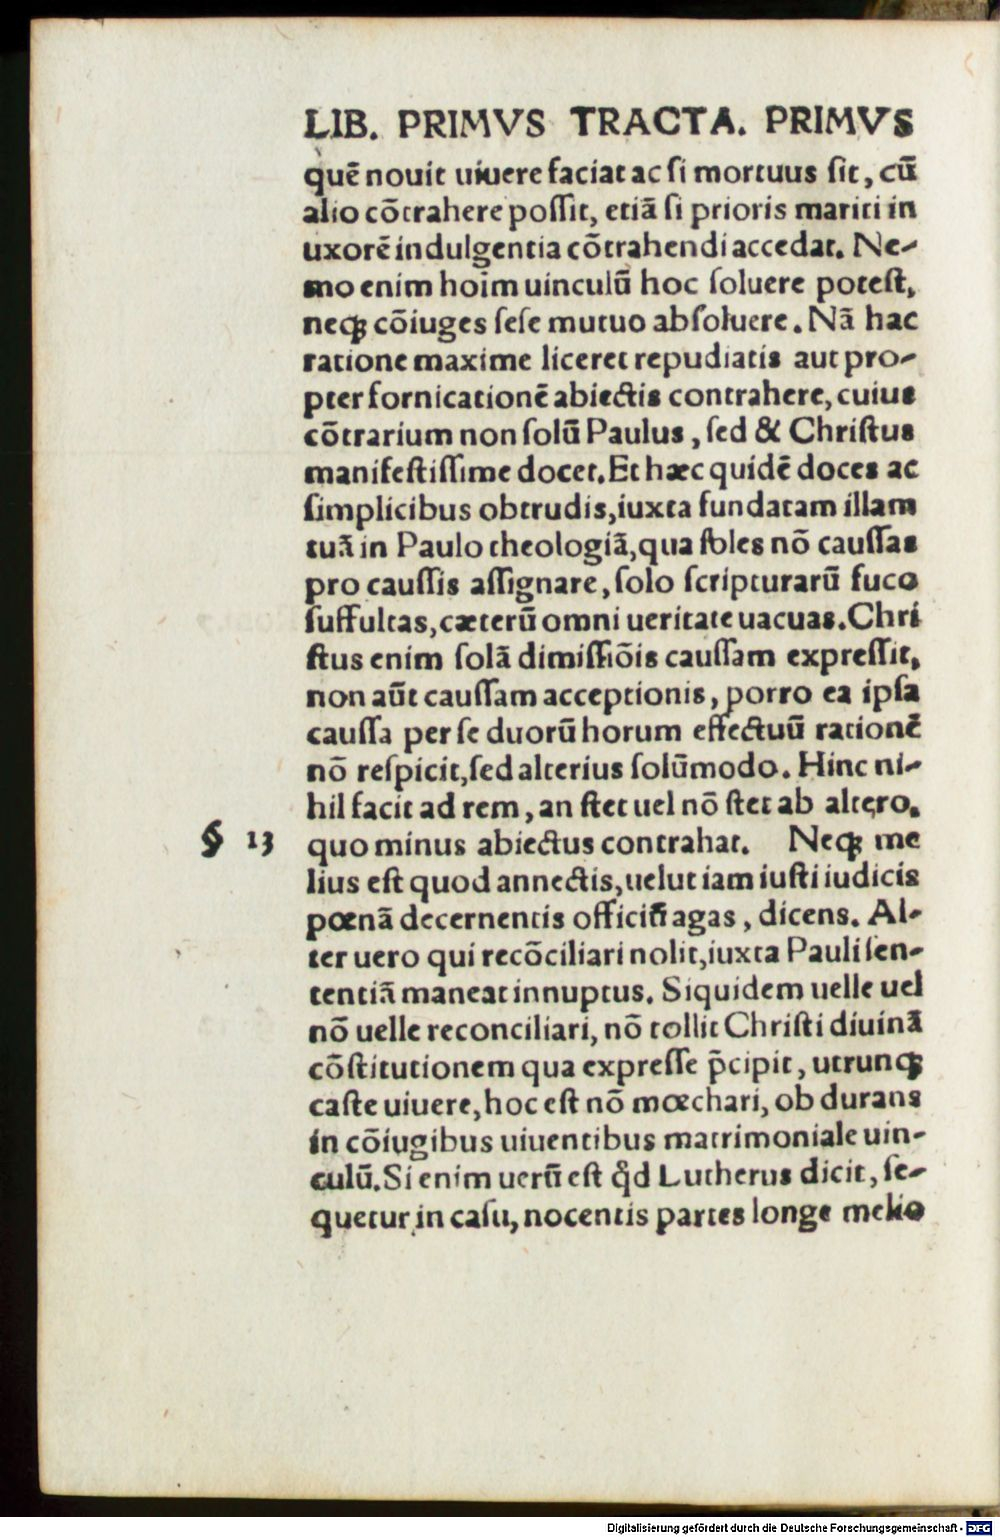 LIB. PRIMVS TRACTA. PRIMVS
quē nouit uiuere faciat ac ſi mortuus ſit, cū
alio cōtrahere poſſit, etiā ſi prioris mariti in
uxorē indulgentia cōtrahendi accedat. Ne-
mo enim hoīm uinculū hoc ſoluere poteſt,
neqꝫ cōiuges ſeſe mutuo abſoluere. Nā hac
ratione maxime liceret repudiatis aut pro-
pter fornicationē abiectis contrahere, cuius
cōtrarium non ſolū Paulus, ſed & Chriſtus
manifeſtiſſime docet. Et hæc quidē doces ac
ſimplicibus obtrudis, iuxta fundatam illam
tuā in Paulo theologiā, qua ſoles nō cauſſas
pro cauſſis aſſignare, ſolo ſcripturarū fuco
ſuffultas, cæterū omni ueritate uacuas. Chri
ſtus enim ſolā dimiſſiōis cauſſam expreſſit,
non aūt cauſſam acceptionis, porro ea ipſa
cauſſa per ſe duorū horum effectuū rationē
nō reſpicit, ſed alterius ſolūmodo. Hinc ni-
hil facit ad rem, an ſtet uel nō ſtet ab altero,
§ 13 quo minus abiectus contrahat. Neqꝫ me
lius eſt quod annectis, uelut iam iuſti iudicis
pœnā decernentis officiū agas, dicens. Al-
ter uero qui recōciliari nolit, iuxta Pauli ſen-
tentiā maneat innuptus. Siquidem uelle uel
nō uelle reconciliari, nō tollit Chriſti diuinā
cōſtitutionem qua expreſſe p̄cipit, utrunqꝫ
caſte uiuere, hoc eſt nō mœchari, ob durans
in cōiugibus uiuentibus matrimoniale uin-
culū. Si enim uerū eſt qd̄ Lutherus dicit, ſe-
quetur in caſu, nocentis partes longe melio
Digitalisierung gefördert durch die Deutsche Forschungsgemeinschaft - DFG